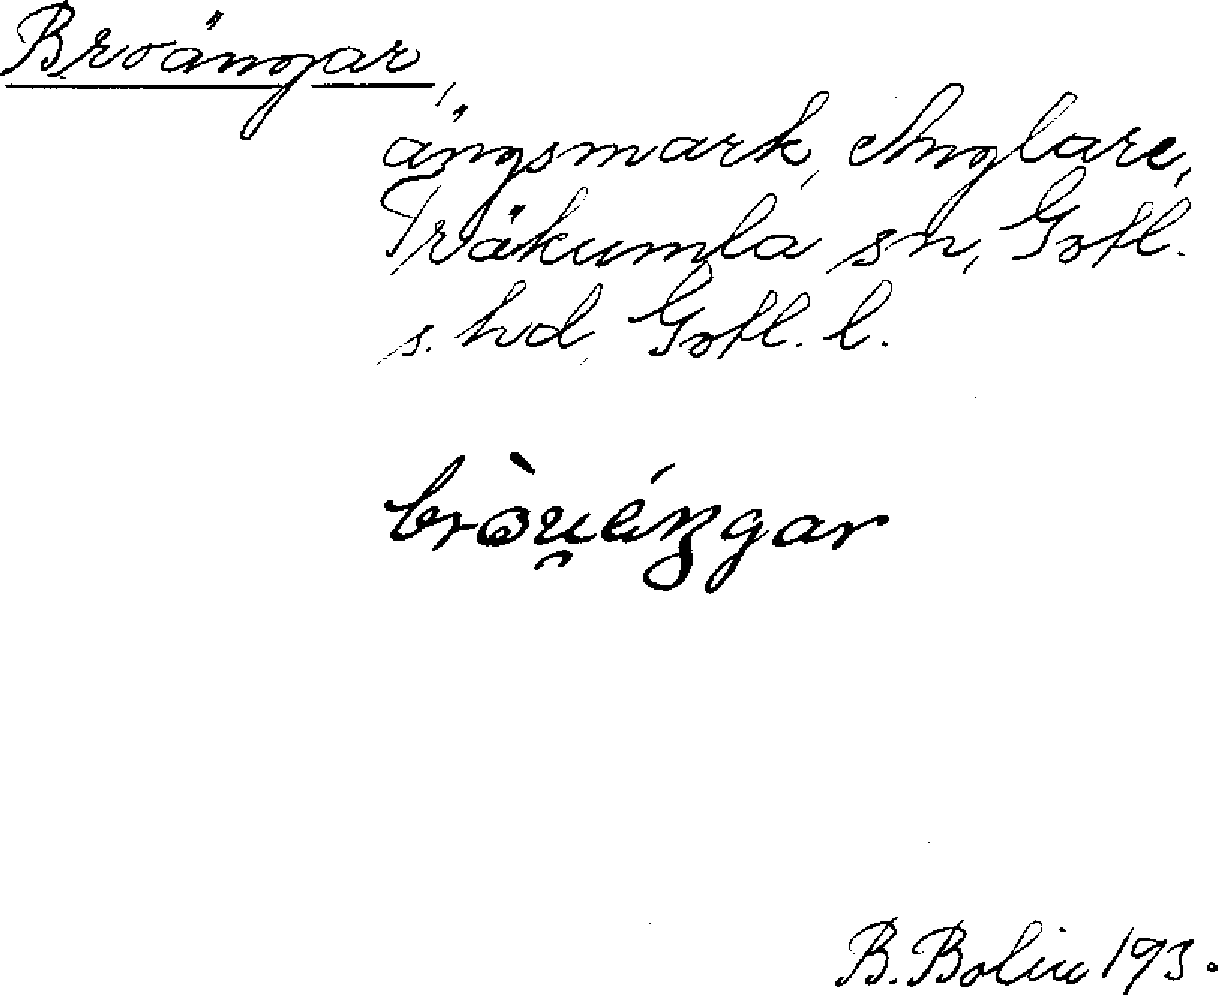 Broängar,
ängsmark, Anglare,
Träkumla sn, Gotl.
s. hd, Gotl. l.
B. Bolin 193.